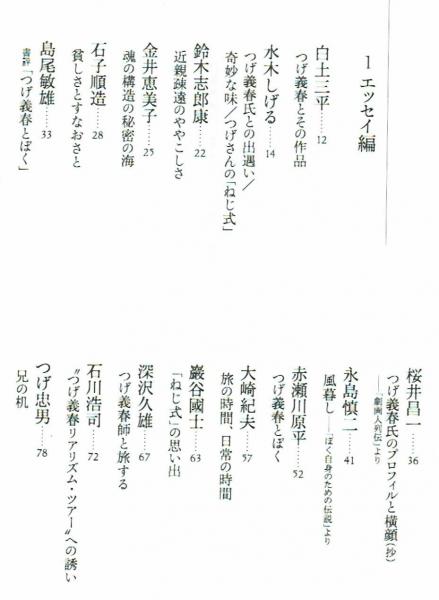 1 エッセイ編
白土三平……12
つげ義春とその作品
水木しげる……14
つげ義春氏との出遇い／
奇妙な味／つげさんの「ねじ式」
鈴木志郎康……22
近親疎遠のややこしさ
金井恵美子……25
魂の構造の秘密の海
石子順造……28
貧しさとすなおさと
島尾敏雄……33
書評「つげ義春とぼく」
桜井昌一……36
つげ義春氏のプロフィルと横顔（抄）
――「劇画人列伝」より
永島慎二……41
風暮し――「ぼく自身のための伝説」より
赤瀬川原平……52
つげ義春とぼく
大崎紀夫……57
旅の時間、日常の時間
巖谷國士……63
「ねじ式」の思い出
深沢久雄……67
つげ義春師と旅する
石川浩司……72
〝つげ義春リアリズム・ツアー〟への誘い
つげ忠男……78
兄の机